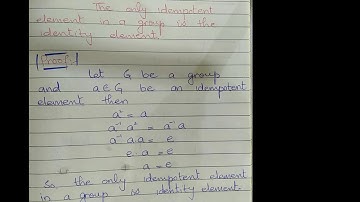 The only idempotent
element in a group is the
identity element.
Proof:
Let G be a group
and a ∈ G be an idempotent
element then
a² = a
a⁻¹ a² = a⁻¹ a
a⁻¹ a a = e
e a = e
a = e
So, the only idempotent element
in a group is identity element.